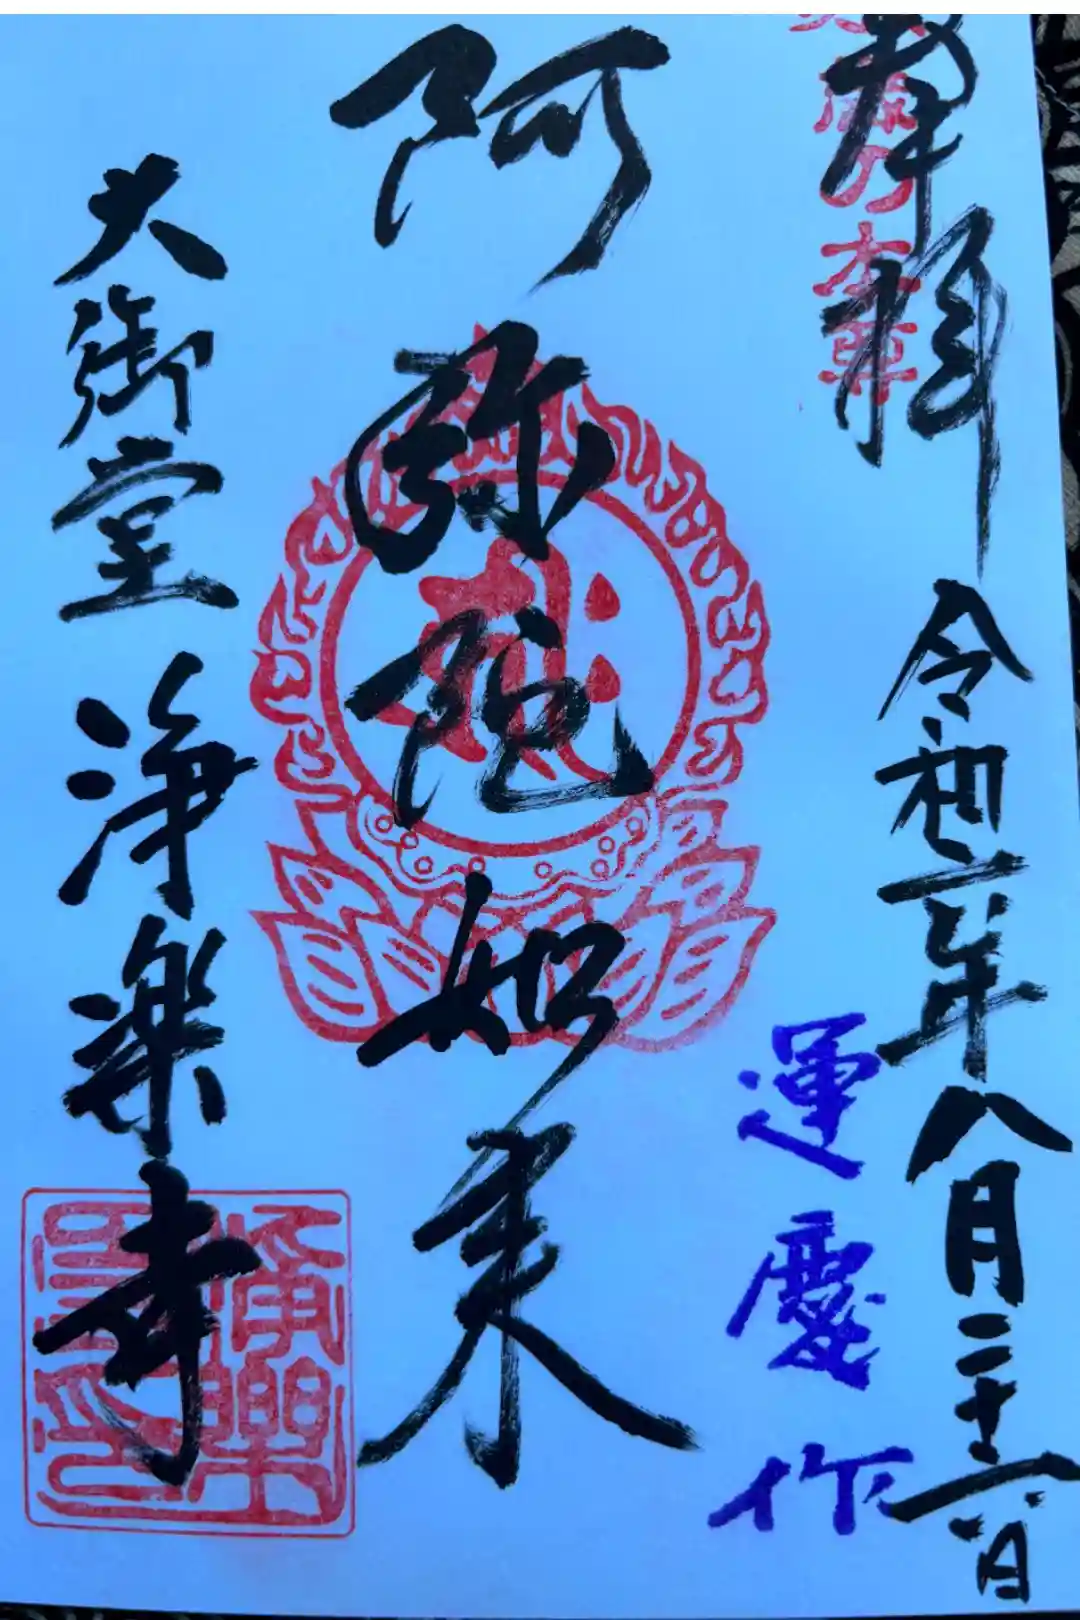 奉拝 令和二年八月二十六日
の本尊
運慶作
阿弥陀如来
大御堂 浄楽寺